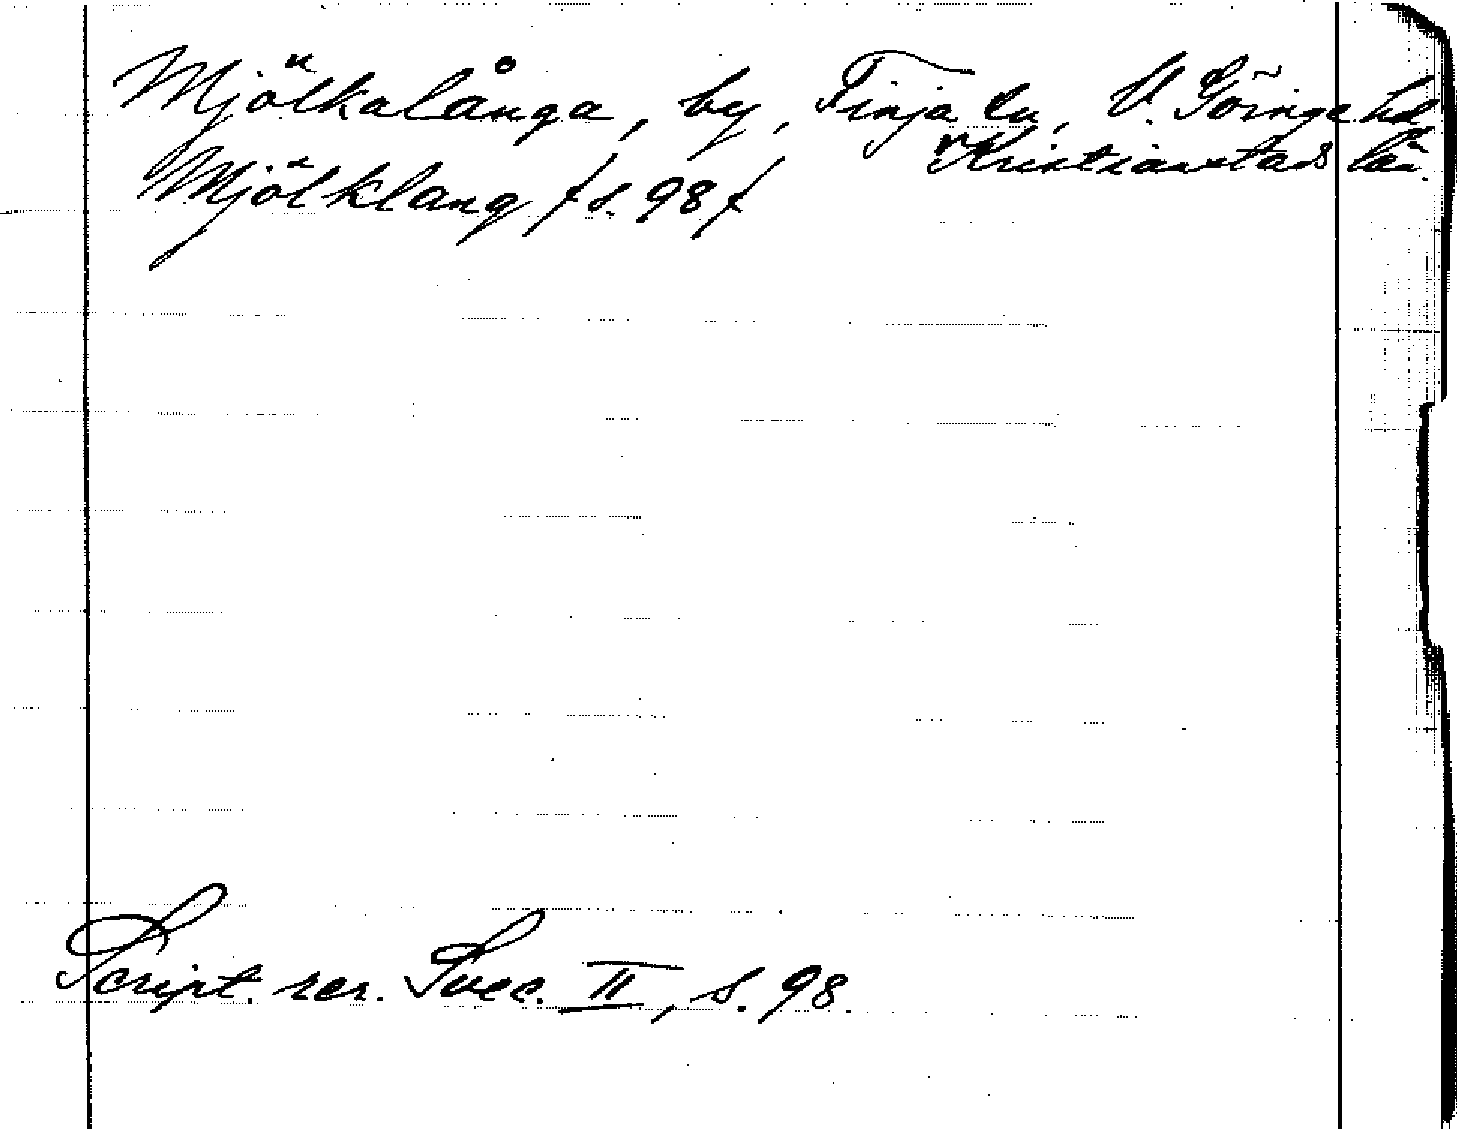 Mjölkalånga, by, Finja sn, V. Göinge hd
Kristianstads län.
Mjölklang /s. 98/
Script. rer. Svec. II, s. 98.